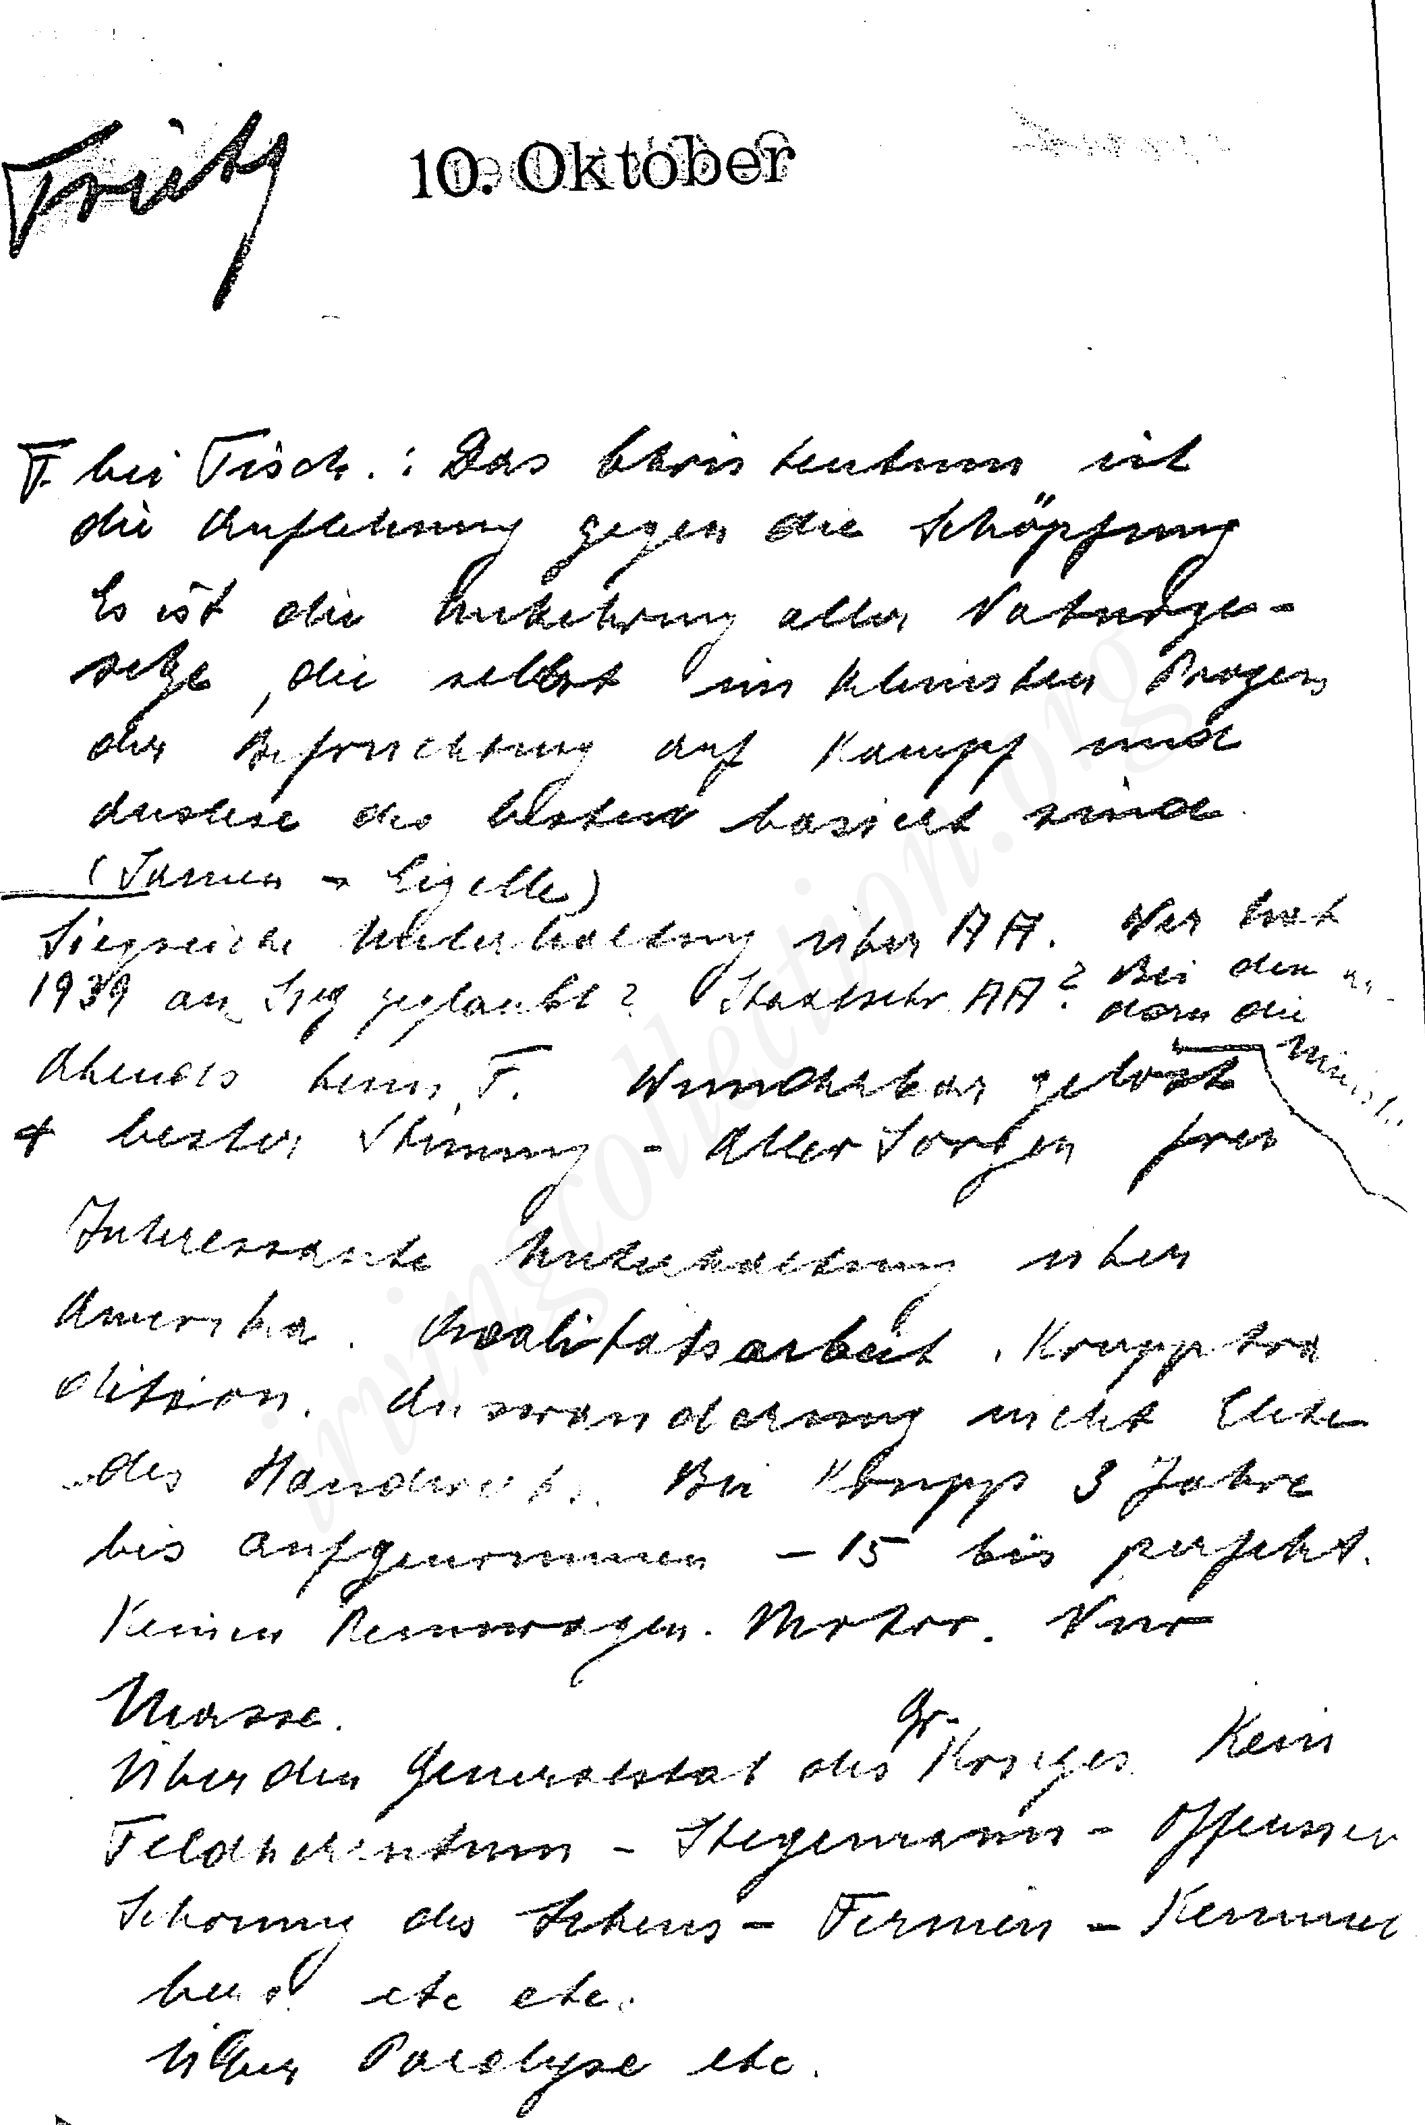 Fritz
10. Oktober
F. bei Tisch.: Das Christentum ist
die Auflehnung gegen die Schöpfung
Es ist die Umkehrung aller Naturge-
setze, die selbst im kleinsten Prozess
der Befruchtung auf Kampf und
Auslese des besten basiert sind.
(Samen - Eizelle)
Siegreiche Unterhaltung über AA. Wer hat
1939 an Sieg geglaubt? Staatsekr. AA? Bei den an-
dern die
Minist.
Abends beim F. Wunderbar gelöst
+ bester Stimmung - aller Sorgen frei
Interessante Unterhaltung über
Amerika. Qualitätsarbeit. Krupp tra
dition. Auswanderung nicht Elite
des Handwerks. Bei Krupp 3 Jahre
bis aufgenommen - 15 bis perfekt.
Keinen Rennwagen. Motor. Nur
Masse.
Über den Generalstab des Gr. Krieges. Kein
Feldherrntum - Stegemann - Offensiven
Schonung des - Termin - Kemmel
berg etc etc.
Über Paralyse etc.
irvingcollection.org